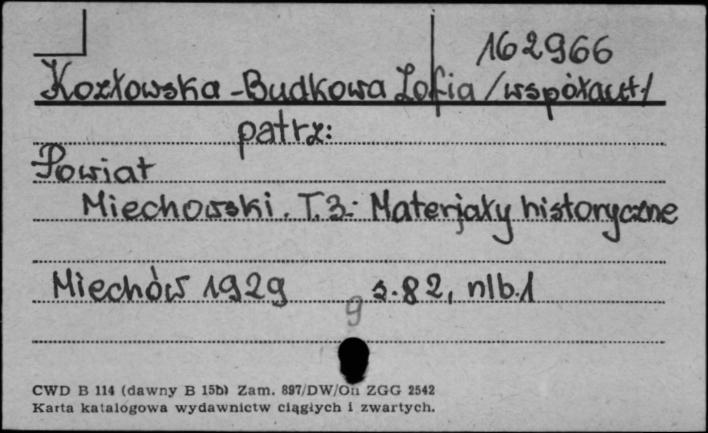 162966
Kozłowska-Budkowa Zofia /współaut./
patrz:
Powiat
Miechowski. T.3: Materjały historyczne
Miechów 1929 s. 82, nlb. 1
9
CWD B 114 (dawny B 15b) Zam. 897/DW/On ZGG 2542
Karta katalogowa wydawnictw ciągłych i zwartych.